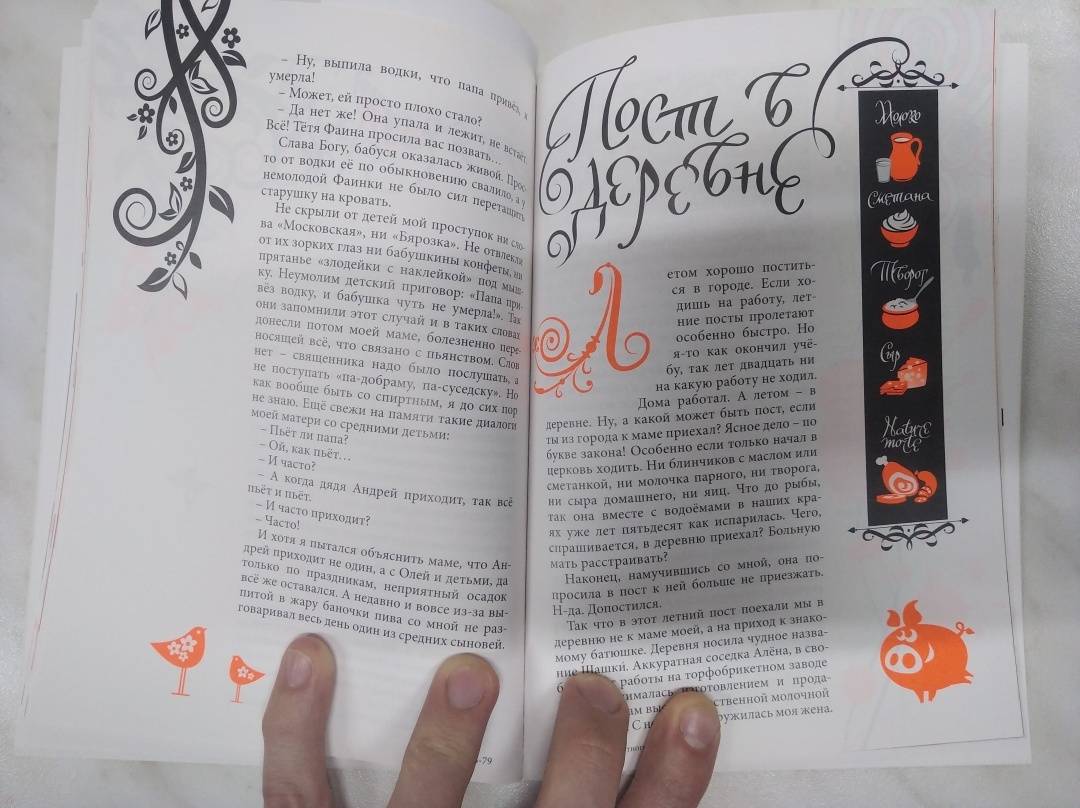 – Ну, выпила водки, что папа привёз, и
умерла!
– Может, ей просто плохо стало?
– Да нет же! Она упала и лежит, не встаёт.
Всё! Тётя Фаина просила вас позвать…
Слава Богу, бабуся оказалась живой. Прос-
то от водки её по обыкновению свалило, а у
немолодой Фаинки не было сил перетащить
старушку на кровать.
Не скрыли от детей мой проступок ни сло-
ва «Московская», ни «Бярозка». Не отвлекли
от их зорких глаз ни бабушкины конфеты, ни
прятанье «злодейки с наклейкой» под мыш-
ку. Неумолим детский приговор: «Папа при-
вёз водку, и бабушка чуть не умерла!». Так
они запомнили этот случай и в таких словах
донесли потом моей маме, болезненно пере-
носящей всё, что связано с пьянством. Слов
нет – священника надо было послушать, а
не поступать «па-добраму, па-суседску». Но
как вообще быть со спиртным, я до сих пор
не знаю. Ещё свежи на памяти такие диалоги
моей матери со средними детьми:
– Пьёт ли папа?
– Ой, как пьёт…
– И часто?
– А когда дядя Андрей приходит, так всё
пьёт и пьёт.
– И часто приходит?
– Часто!
И хотя я пытался объяснить маме, что Ан-
дрей приходит не один, а с Олей и детьми, да
только по праздникам, неприятный осадок
всё же оставался. А недавно и вовсе из-за вы-
питой в жару баночки пива со мной не раз-
говаривал весь день один из средних сыновей.
-79
Пост в
деревне
Летом хорошо постить-
ся в городе. Если хо-
дишь на работу, лет-
ние посты пролетают
особенно быстро. Но
я-то как окончил учё-
бу, так лет двадцать ни
на какую работу не ходил.
Дома работал. А летом – в
деревне. Ну, а какой может быть пост, если
ты из города к маме приехал? Ясное дело – по
букве закона! Особенно если только начал в
церковь ходить. Ни блинчиков с маслом или
сметанкой, ни молочка парного, ни творога,
ни сыра домашнего, ни яиц. Что до рыбы,
так она вместе с водоёмами в наших кра-
ях уже лет пятьдесят как испарилась. Чего,
спрашивается, в деревню приехал? Больную
мать расстраивать?
Наконец, намучившись со мной, она по-
просила в пост к ней больше не приезжать.
Н-да. Допостился.
Так что в этот летний пост поехали мы в
деревню не к маме моей, а на приход к знако-
мому батюшке. Деревня носила чудное назва-
ние Шашки. Аккуратная соседка Алёна, в сво-
работы на торфобрикетном заводе
изготовлением и прода-
ственной молочной
С моя жена.
Молоко
Сметана
Творог
Сыр
Nature
morte